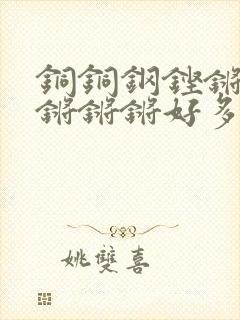 銅銅鋼鏗鏘
鏘鏘鏘好多
姚雙喜